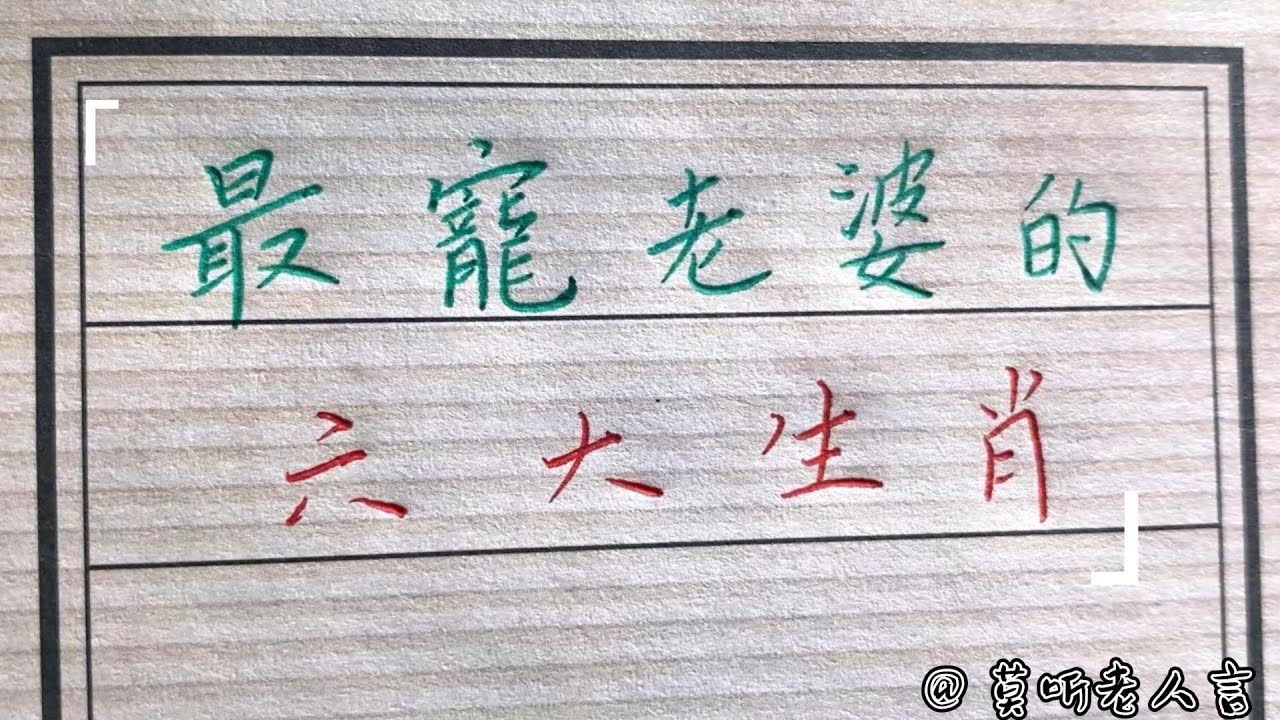 最寵老婆的
六大生肖
@莫听老人言